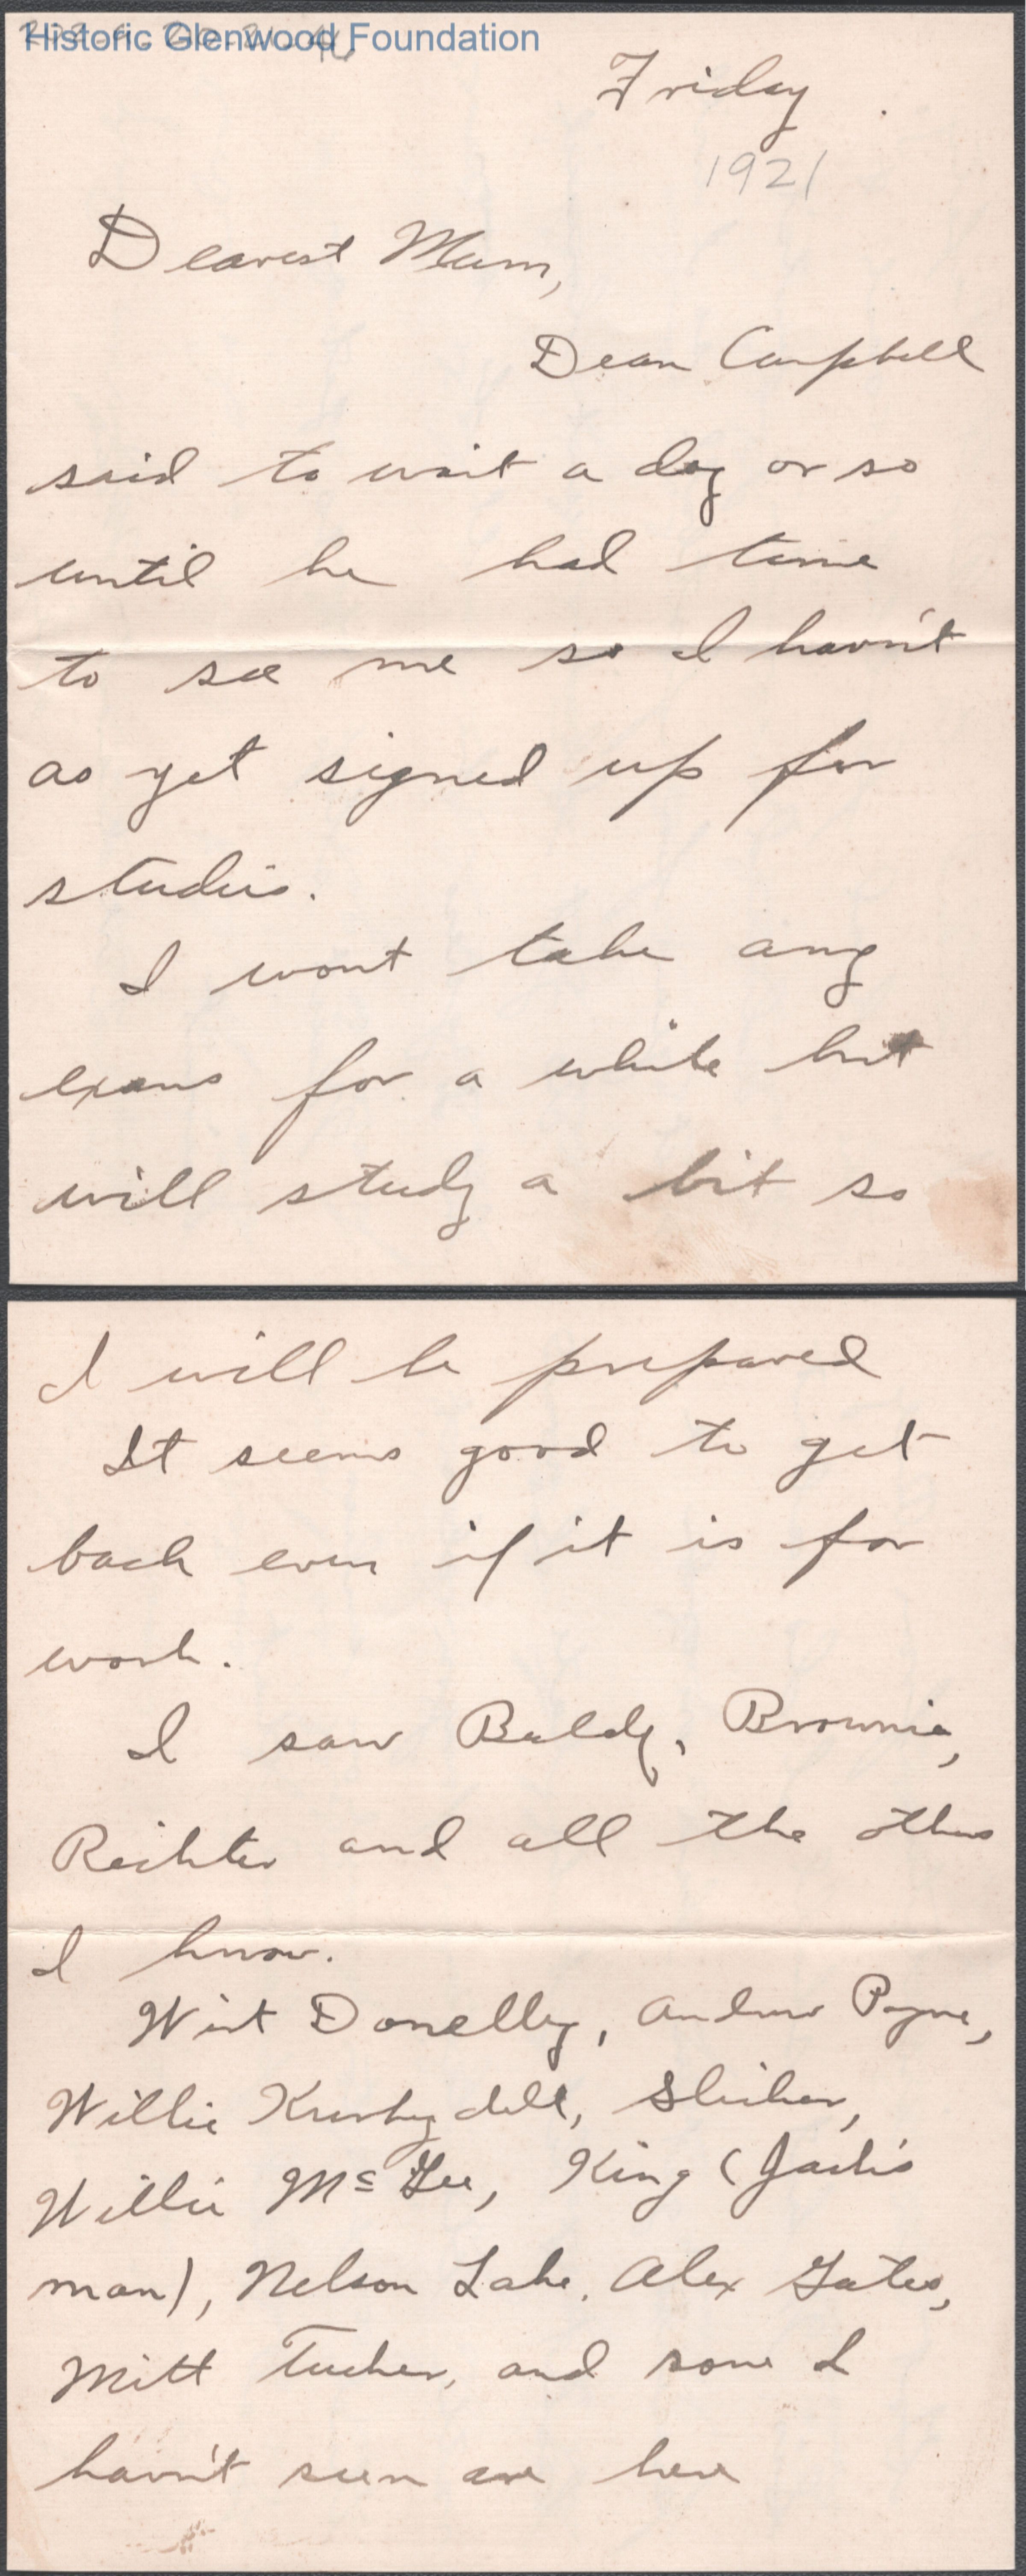 Historic Glenwood Foundation
Friday
1921
Dearest Mum,
Dean Campbell
said to wait a day or so
until he had time
to see me so I havn't
as yet signed up for
studies.
I wont take any
exams for a while but
will study a bit so
I will be prepared
It seems good to get
back even if it is for
work.
I saw Baldy, Brownie,
Reichter and all the others
I know.
Wirt Donelley, Andrew Payne,
Willie
Willie McGee, King (Jack's
man), Nelson Lake, Alex Gates,
Mitt Tucker, and some I
havn't seen are here